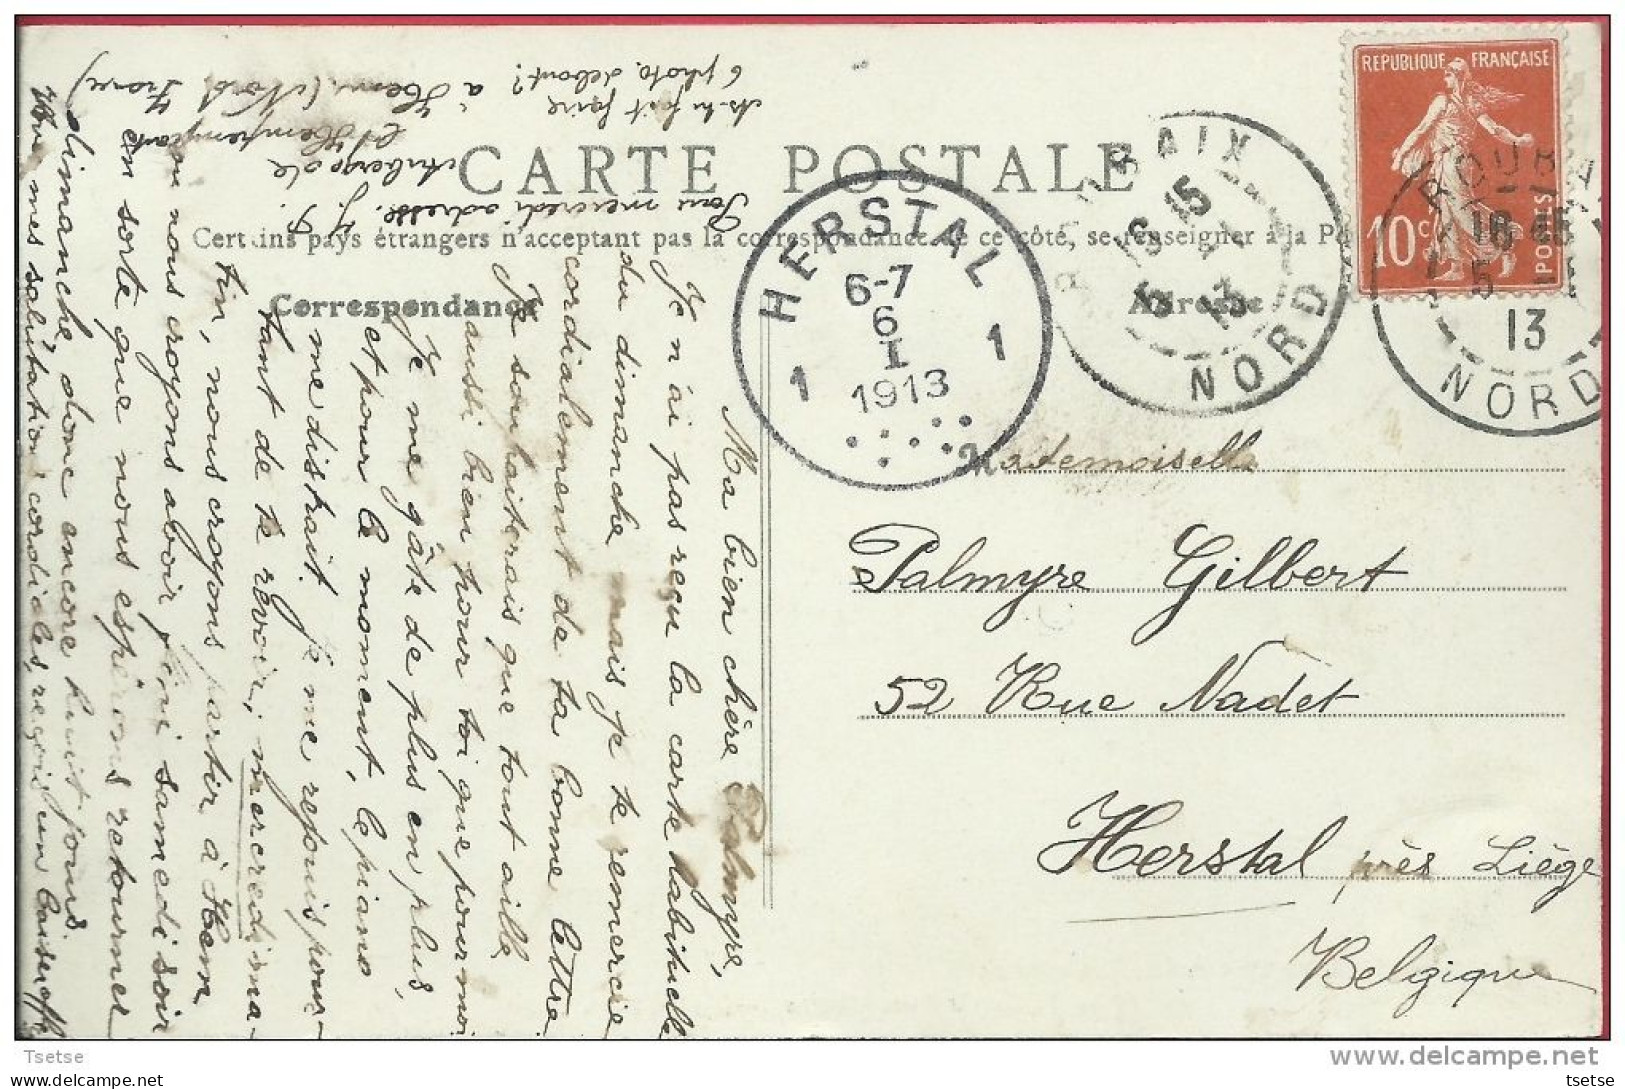 CARTE POSTALE
Certains pays étrangers n'acceptant pas la correspondance de ce côté, se renseigner à la Po
Correspondance
Adresse
REPUBLIQUE FRANÇAISE
10c
POSTES
ROUBAIX
16 45
5
13
NORD
ROUBAIX
16 15
5
13
NORD
HERSTAL
6-7
6
I
1913
1 1
Mademoiselle
Palmyre Gilbert
52 Rue Nadet
Herstal, près Liège
Belgique
Ma bien chère Palmyre,
Je n'ai pas reçu la carte habituelle
du dimanche mais je te remercie
cordialement de ta bonne lettre
Je souhaiterais que tout aille
aussi bien pour toi que pour moi
Je me gâte de plus en plus,
et pour le moment, le piano
me distrait. Je me repuis pour-
tant de te revoir; mercredi ma-
tin, nous croyons partir à Hem
nous croyons avoir fini samedi soir
en sorte que nous espérons retourner
dimanche donc encore huit jours
mes salutations cordiales, reçois un baiser
Pour mercredi adresse. J. P.
Auberge de
à Hem (Nord France)
As-tu fait faire
6 photo debout?
Tsetse
www.delcampe.net
tsetse